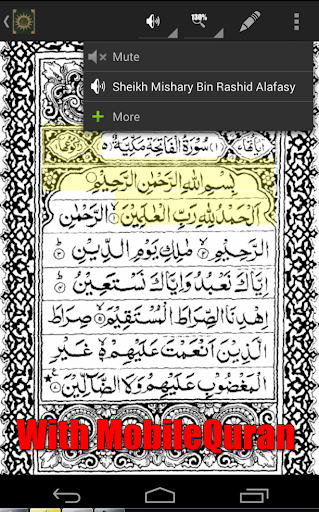 130%
Mute
Sheikh Mishary Bin Rashid Alafasy
More
سُوْرَةُ الْفَاتِحَةِ مَكِّيَّةٌ
بِسْمِ اللهِ الرَّحْمٰنِ الرَّحِيْمِ
اَلْحَمْدُ لِلّٰهِ رَبِّ الْعٰلَمِيْنَ ۙ الرَّحْمٰنِ
الرَّحِيْمِ ۙ مٰلِكِ يَوْمِ الدِّيْنِ ؕ
اِيَّاكَ نَعْبُدُ وَاِيَّاكَ نَسْتَعِيْنُ ؕ
اِهْدِنَا الصِّرَاطَ الْمُسْتَقِيْمَ ۙ صِرَاطَ
الَّذِيْنَ اَنْعَمْتَ عَلَيْهِمْ ۙ غَيْرِ
الْمَغْضُوْبِ عَلَيْهِمْ وَلَا الضَّآلِّيْنَ
With MobileQuran